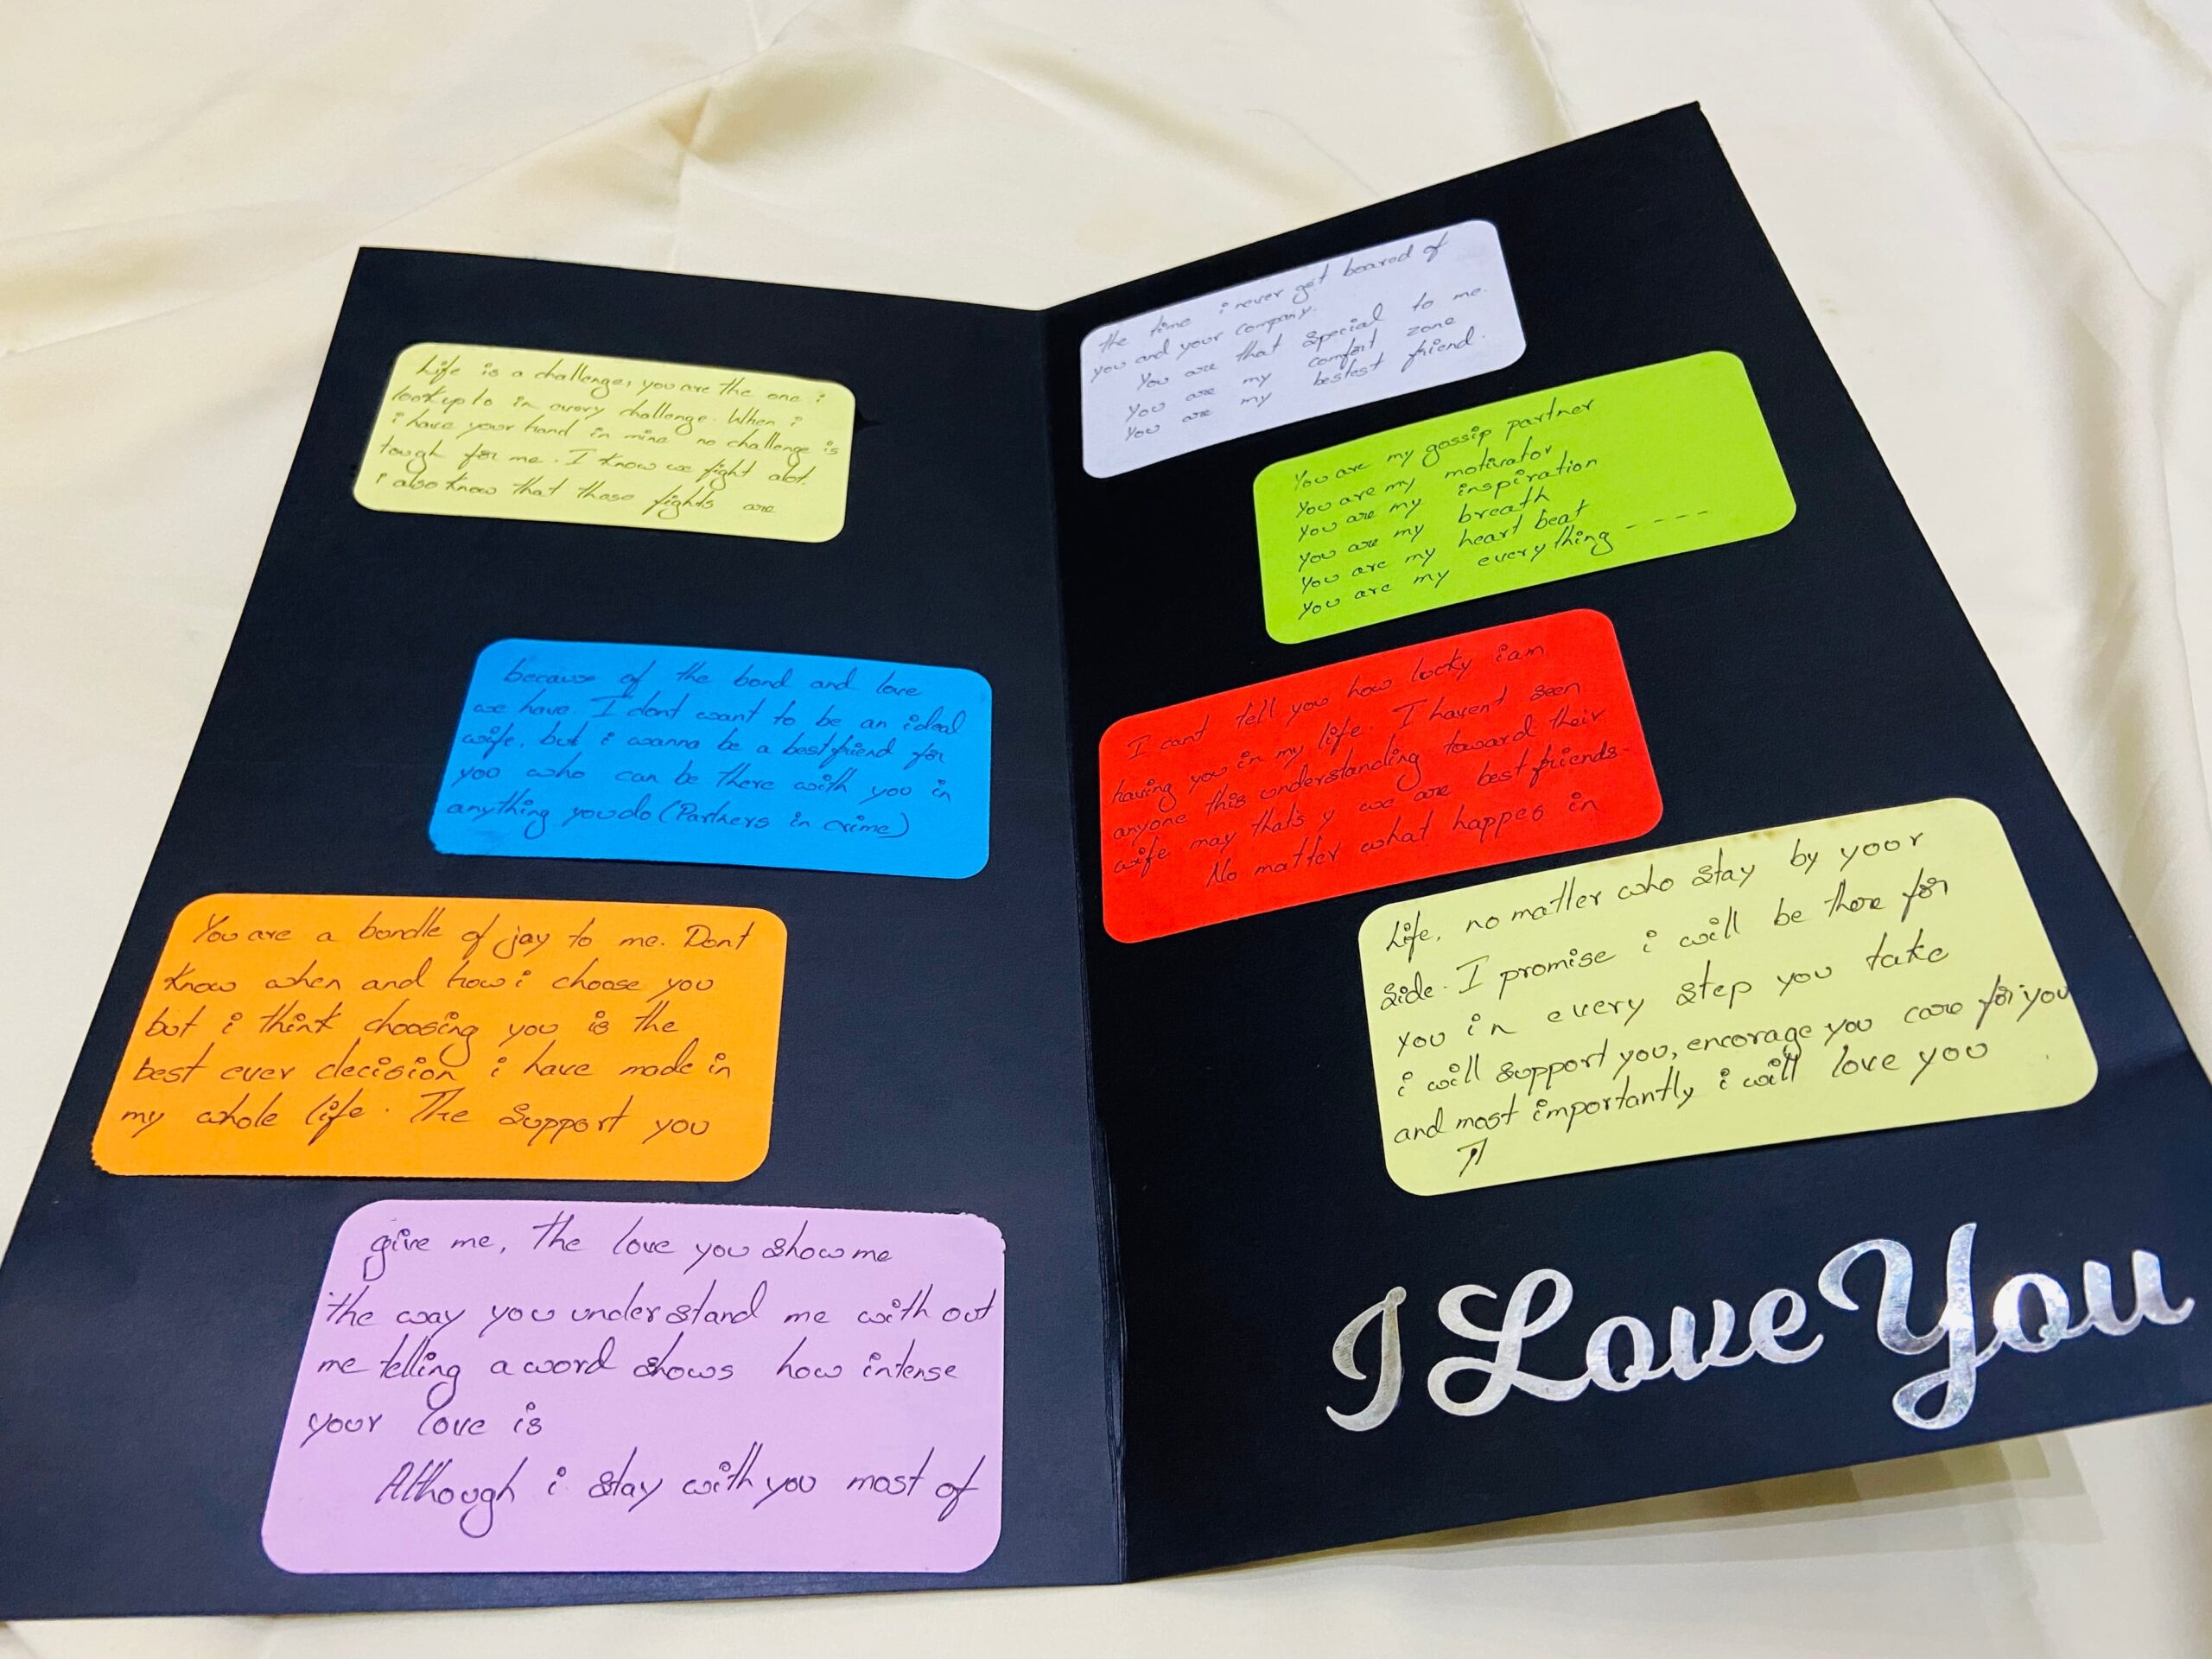 Life is a challenge, you are the one i
look up to in every challenge. When i
i have your hand in mine no challenge is
tough for me. I know we fight alot.
i also know that those fights are
because of the bond and love
we have. I dont want to be an ideal
wife, but i wanna be a best friend for
you who can be there with you in
anything you do (Partners in crime)
You are a bundle of joy to me. Dont
know when and how i choose you
but i think choosing you is the
best ever decision i have made in
my whole life. The Support you
give me, The love you show me
the way you understand me with out
me telling a word shows how intense
your love is
Although i stay with you most of
the time i never get boared of
you and your company.
You are that special to me.
You are my comfort zone
You are my bestest friend.
You are my gossip partner
You are my motivator
You are my inspiration
You are my breath
You are my heart beat
You are my everything ----
I cant tell you how lucky i am
having you in my life. I havent seen
anyone this understanding toward their
wife may thats y we are best friends.
No matter what happes in
Life, no matter who stay by your
side. I promise i will be there for
you in every step you take
i will support you, encorage you care for you
and most importantly i will love you
I Love You